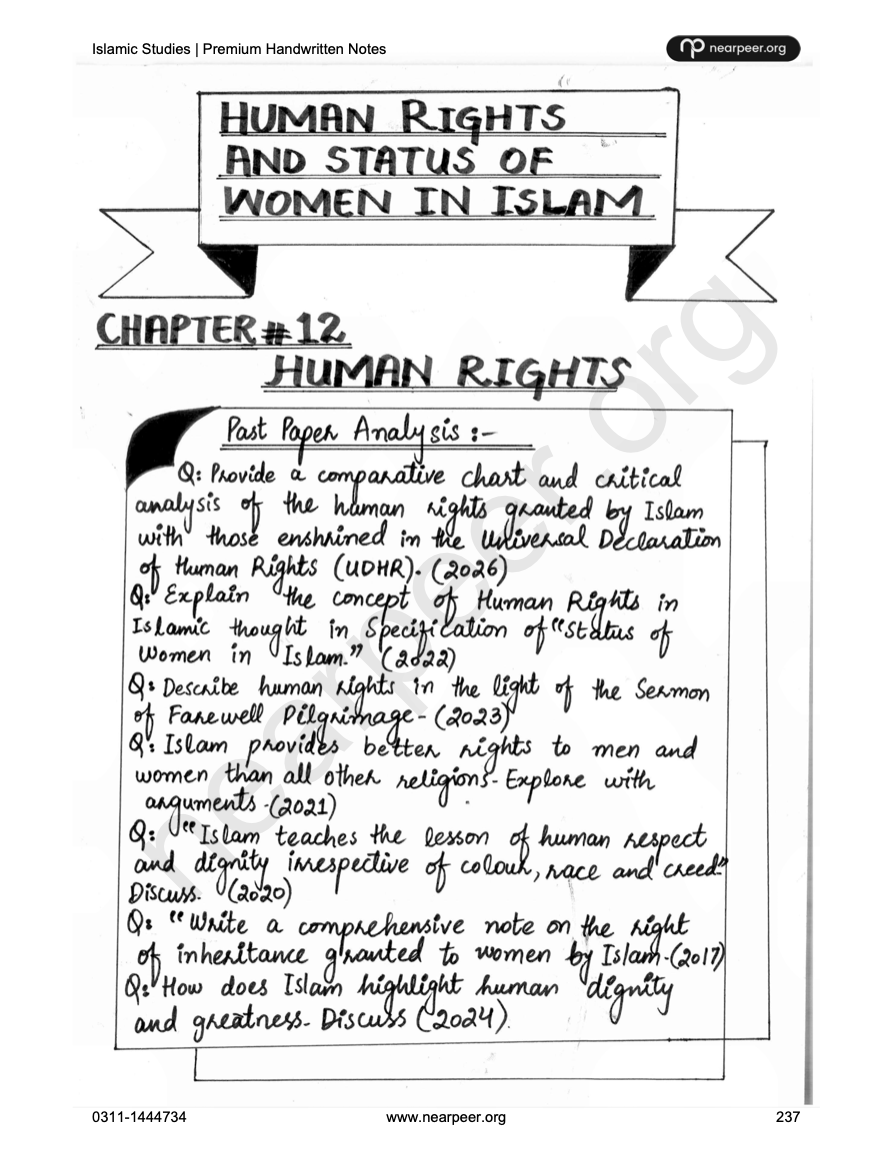 Islamic Studies | Premium Handwritten Notes
nearpeer.org
HUMAN RIGHTS
AND STATUS OF
WOMEN IN ISLAM
CHAPTER #12
HUMAN RIGHTS
Past Paper Analysis :-
Q: Provide a comparative chart and critical
analysis of the human rights granted by Islam
with those enshrined in the Universal Declaration
of Human Rights (UDHR). (2026)
Q: Explain the concept of Human Rights in
Islamic thought in Specification of "Status of
Women in Islam." (2022)
Q: Describe human rights in the light of the Sermon
of Farewell Pilgrimage - (2023)
Q: Islam provides better rights to men and
women than all other religions - Explore with
arguments - (2021)
Q: "Islam teaches the lesson of human respect
and dignity irrespective of colour, race and creed"
Discuss. (2020)
Q: "Write a comprehensive note on the right
of inheritance granted to women by Islam - (2017)
Q: How does Islam highlight human dignity
and greatness - Discuss (2024).
nearpeer.org
0311-1444734
www.nearpeer.org
237